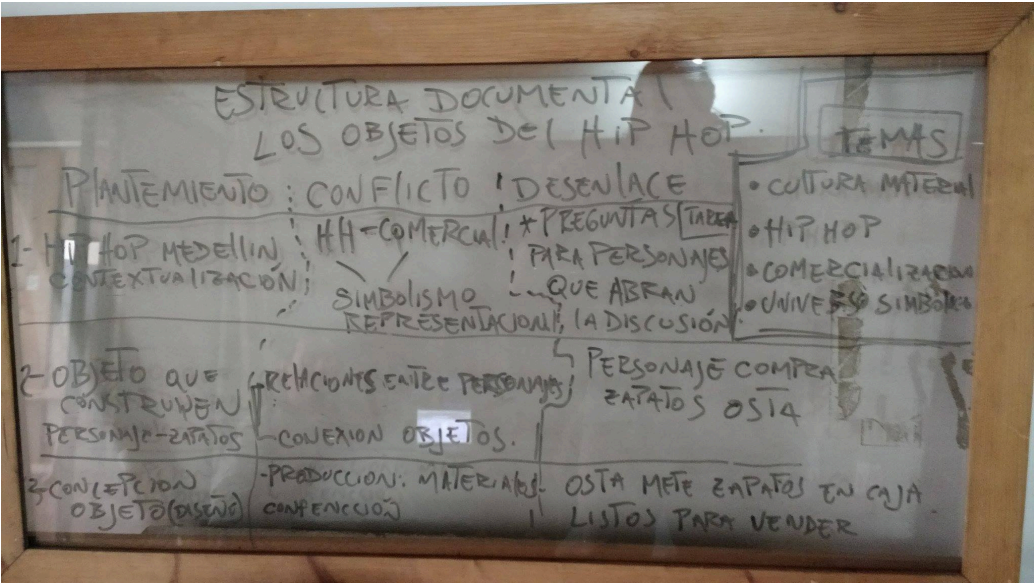 ESTRUCTURA DOCUMENTAL
LOS OBJETOS DEL HIP HOP.
TEMAS
• CULTURA MATERIAL
• HIP HOP
• COMERCIALIZACION
• UNIVERSO SIMBÓLICO
PLANTEMIENTO : CONFLICTO : DESENLACE
1- HIP HOP MEDELLIN
CONTEXTUALIZACIÓN
HH-COMERCIAL
SIMBOLISMO
REPRESENTACION
* PREGUNTAS TAREA
PARA PERSONAJES
QUE ABRAN
LA DISCUSIÓN
2- OBJETO QUE
CONSTRUYEN
PERSONAJE-ZAPATOS
-RELACIONES ENTRE PERSONAJES
-CONEXION OBJETOS.
PERSONAJE COMPRA
ZAPATOS OSTA
3-CONCEPCION
OBJETO (DISEÑO)
-PRODUCCION: MATERIALES-
CONFENCCIÓN
OSTA METE ZAPATOS EN CAJA
LISTOS PARA VENDER